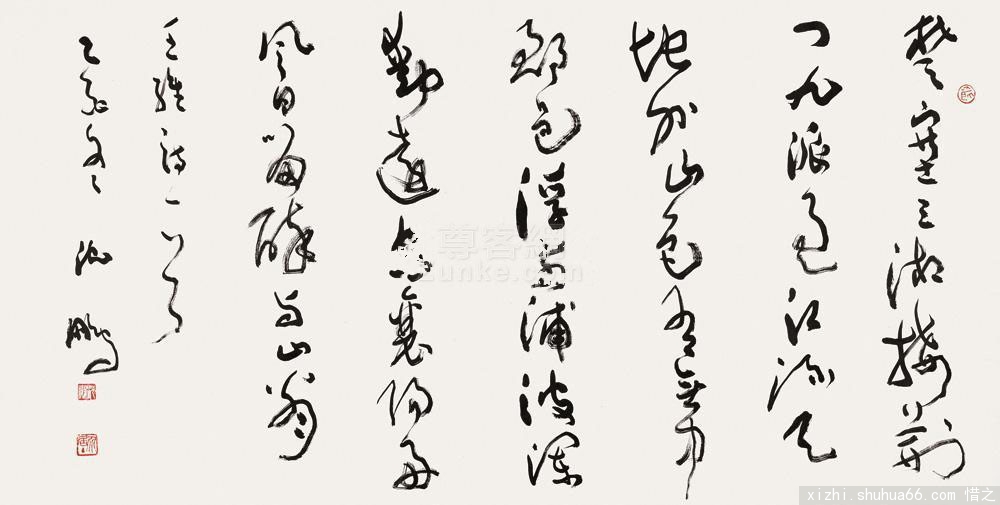 楚塞三湘接荆
门九派通江流天
地外山色有无中
郡邑浮前浦波澜
動遠空襄陽好
風日留醉与山翁
王維詩一首
乙亥冬 沈鵬
尊客網
Zunke.com
xizhi.shuhua66.com 惜之